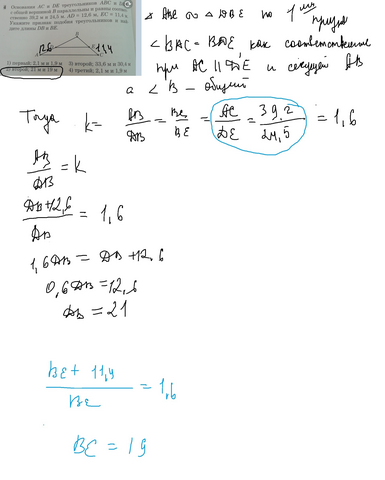 8 Основания AC и DE треугольников ABC и DBE
с общей вершиной B параллельны и длины соответственно
39,2 м и 24,5 м, AD = 12,6 м, EC = 11,4 м.
Укажите признак подобия треугольников и найдите длины DB и BE.
12,6 11,4
1) первой; 2,1 м и 1,9 м 2) второй; 33,6 м и 30,4 м
3) первой; 21 м и 19 м 4) третий; 2,1 м и 1,9 м
Δ ABC ∾ Δ DBE по 1ому
∠ BAC = BDE, как соответственные
при AC || DE и секущей AB
а ∠ B – общий
Тогда k = AB/DB = BC/BE = AC/DE = 39,2/24,5 = 1,6
AB/DB = k
DB+12,6/DB = 1,6
1,6DB = DB+12,6
0,6DB = 12,6
DB = 21
BE + 11,4/BE = 1,6
BE = 19